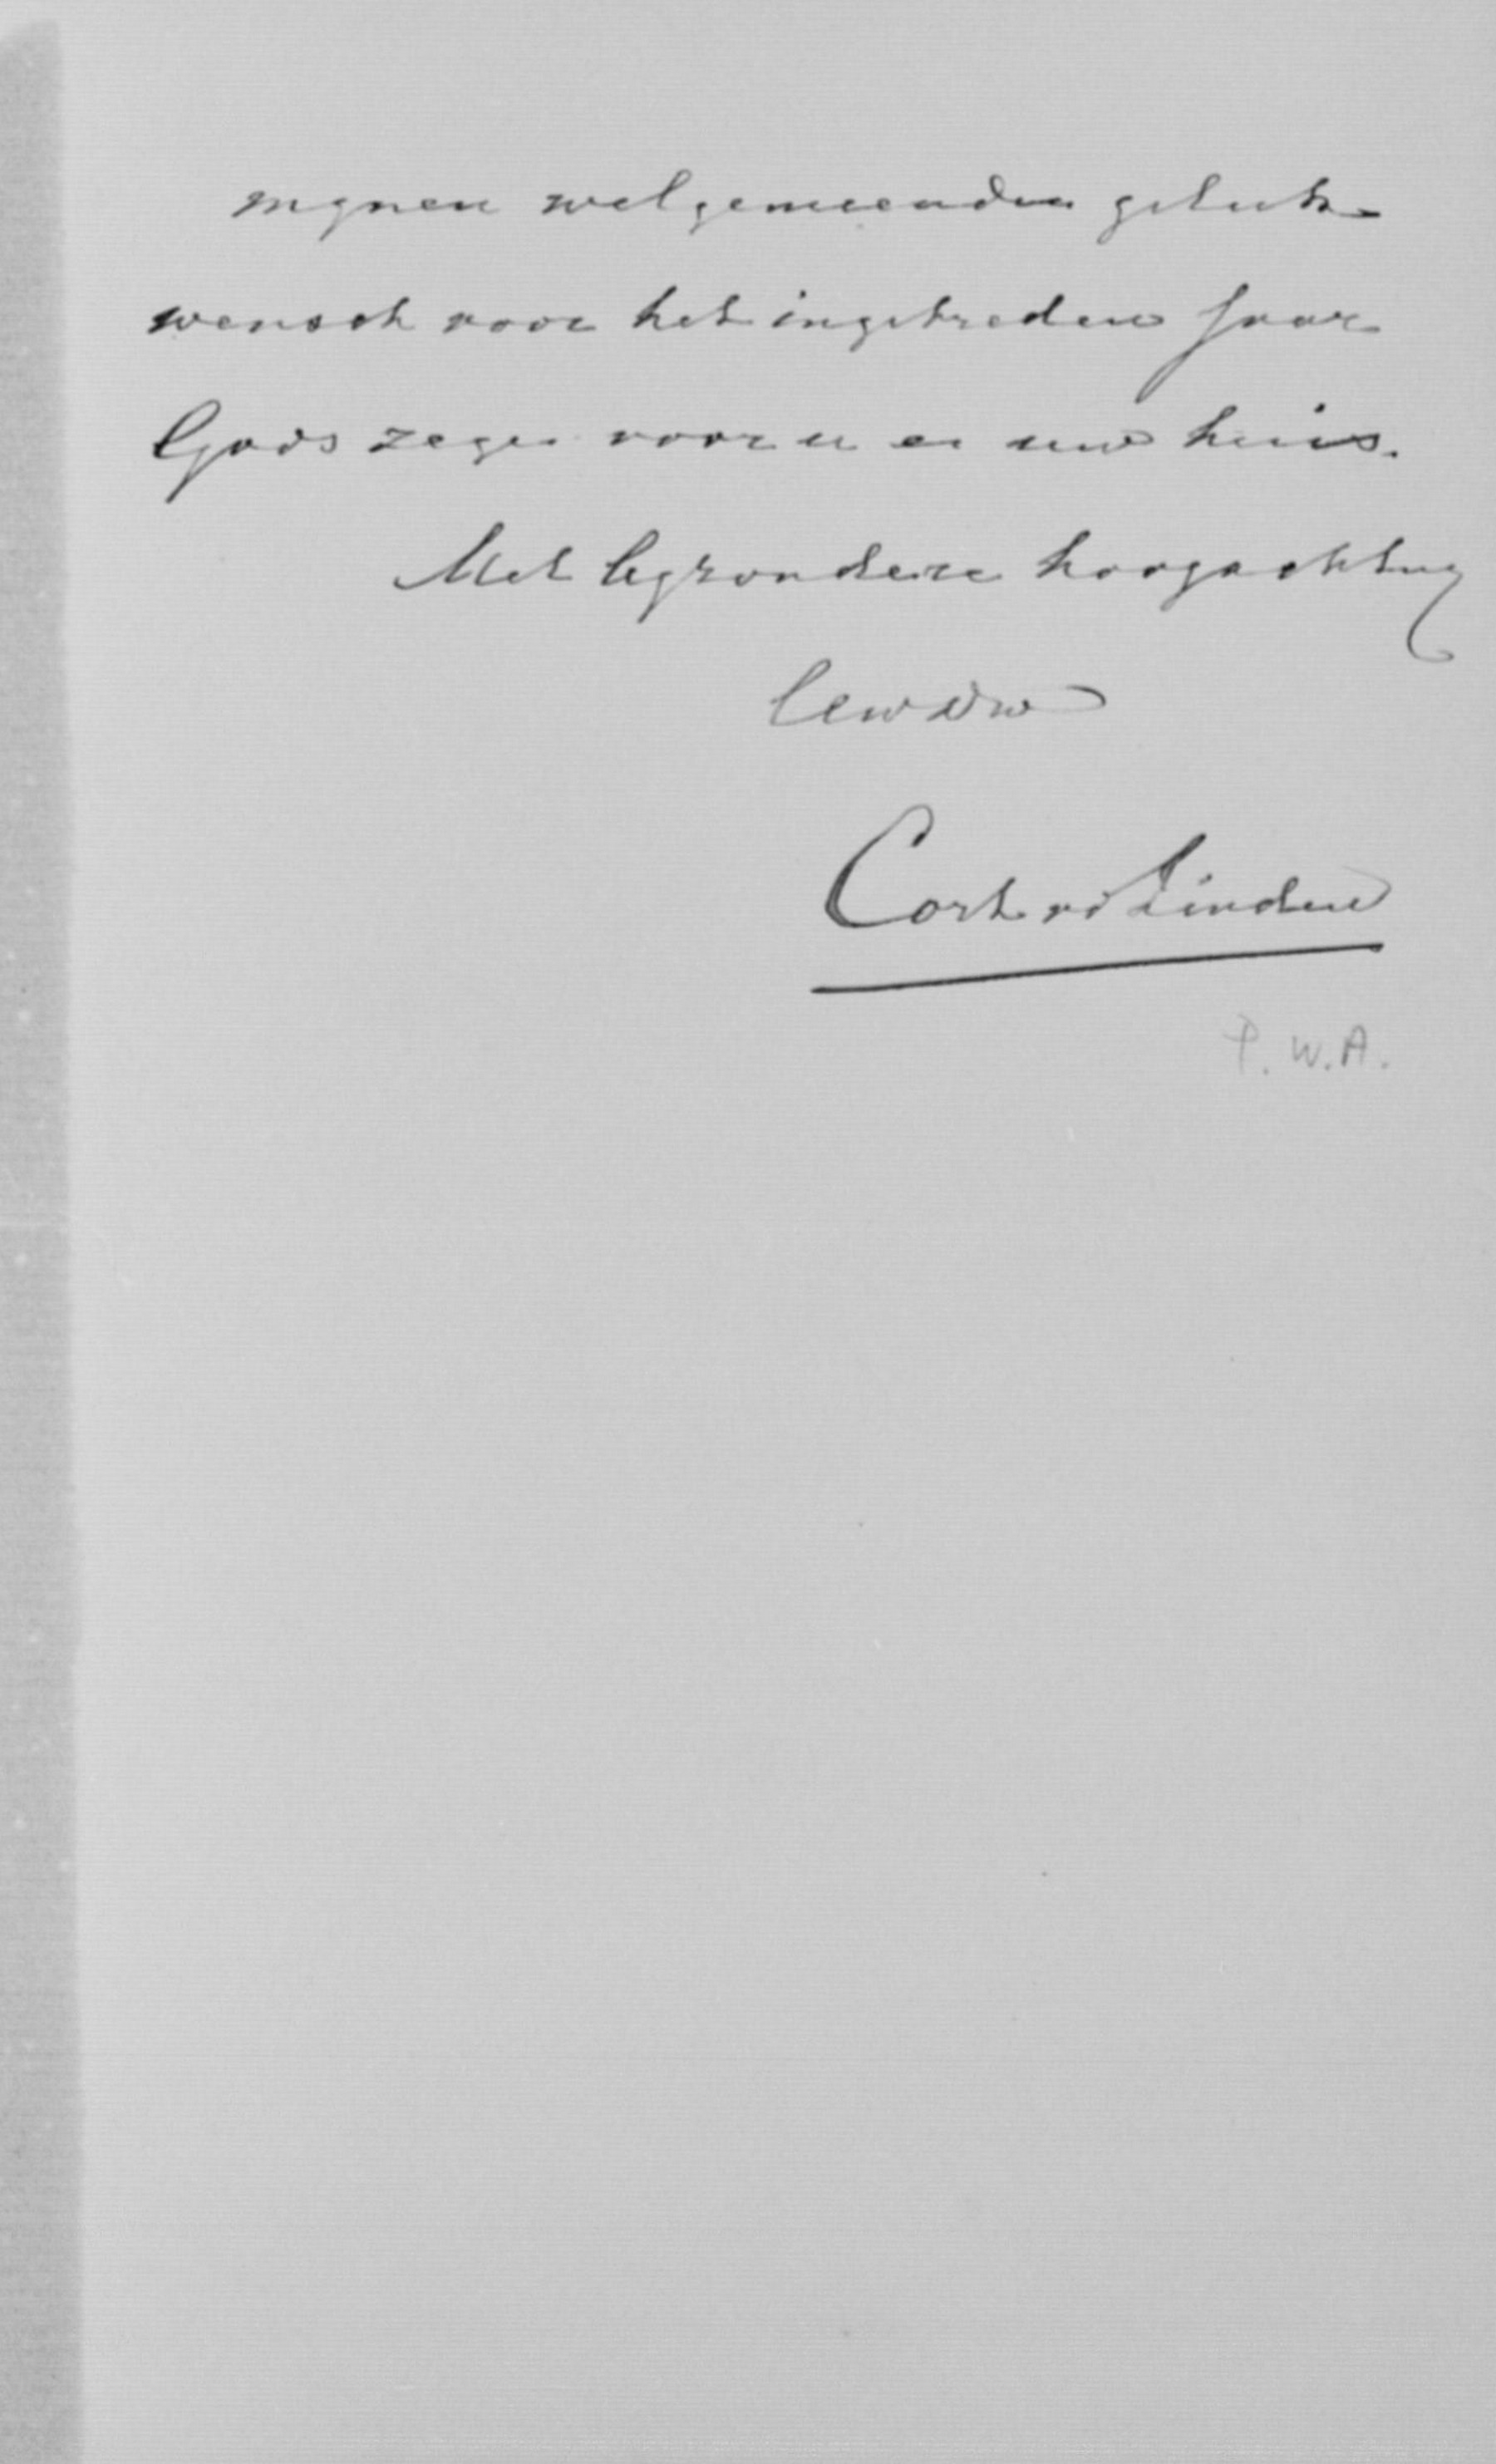 mynen welgemeenden geluk-
wensch voor het ingetreden Jaar
Gods zegen voor u en uw huis.
Met byzondere hoogachting
Uw dw
Cort vd Linden
P.W.A.